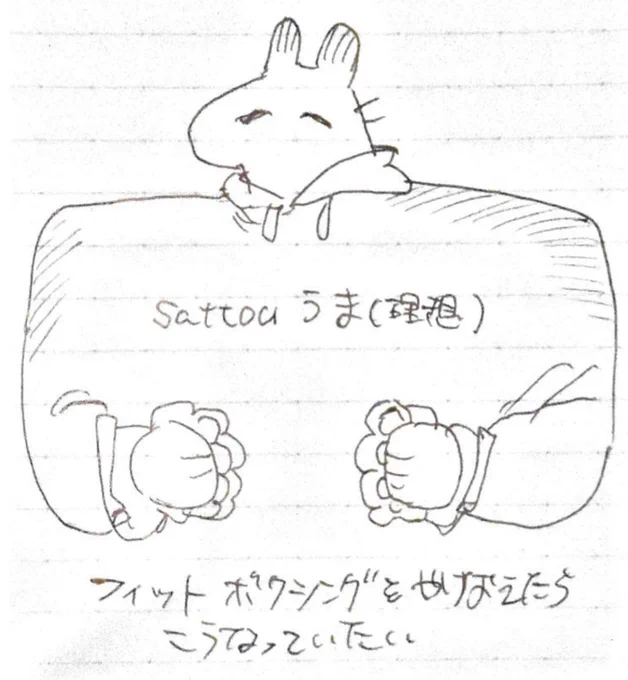 Sattou うま(理想)
フィット ボクシングをやりおえたら
こうなっていたい